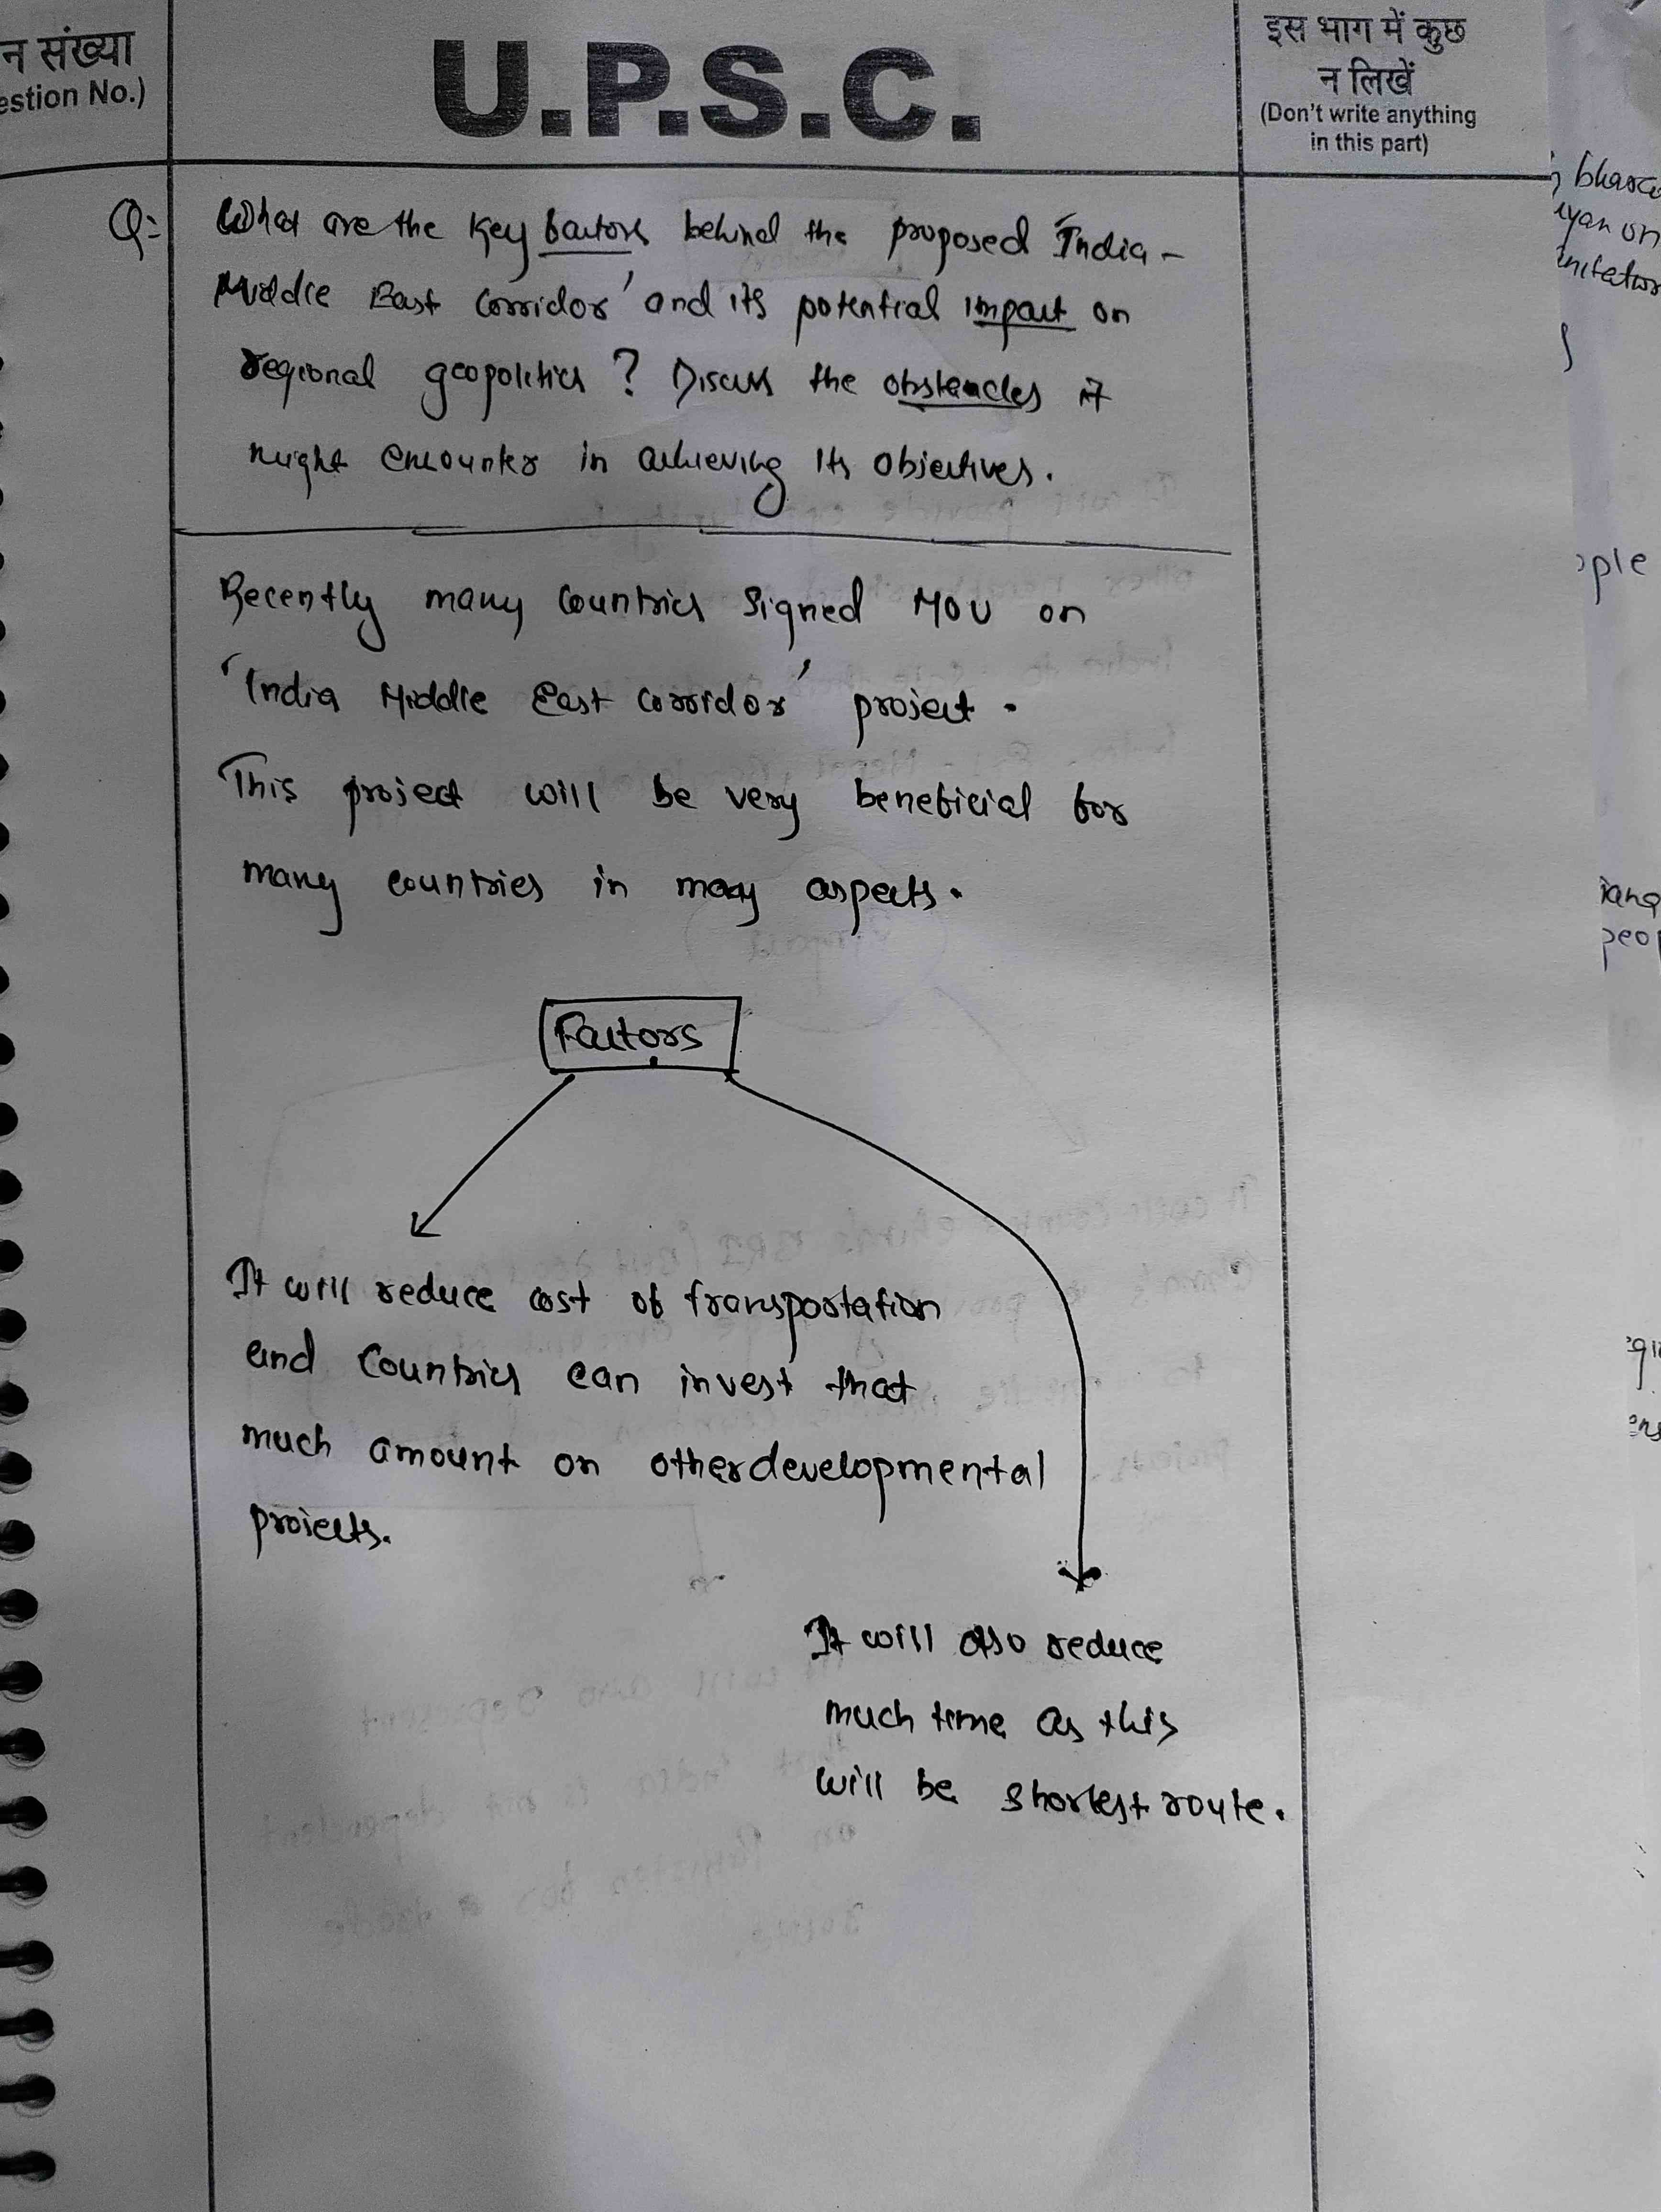 न संख्या
estion No.)
U.P.S.C.
इस भाग में कुछ
न लिखें
(Don't write anything
in this part)
Q:
What are the Key factors behind the proposed India -
Middle East Corridor' and its potential impact on
regional geopolitics ? Discuss the obsteacles it
might encounter in achieving its objectives.
Recently many countries signed MOU on
'India Middle East Corridor' project.
This project will be very beneficial for
many countries in many aspects.
Factors
It will reduce cost of transportation
and Countries can invest that
much amount on other developmental
projects.
It will also reduce
much time as this
will be shortest route.
ople